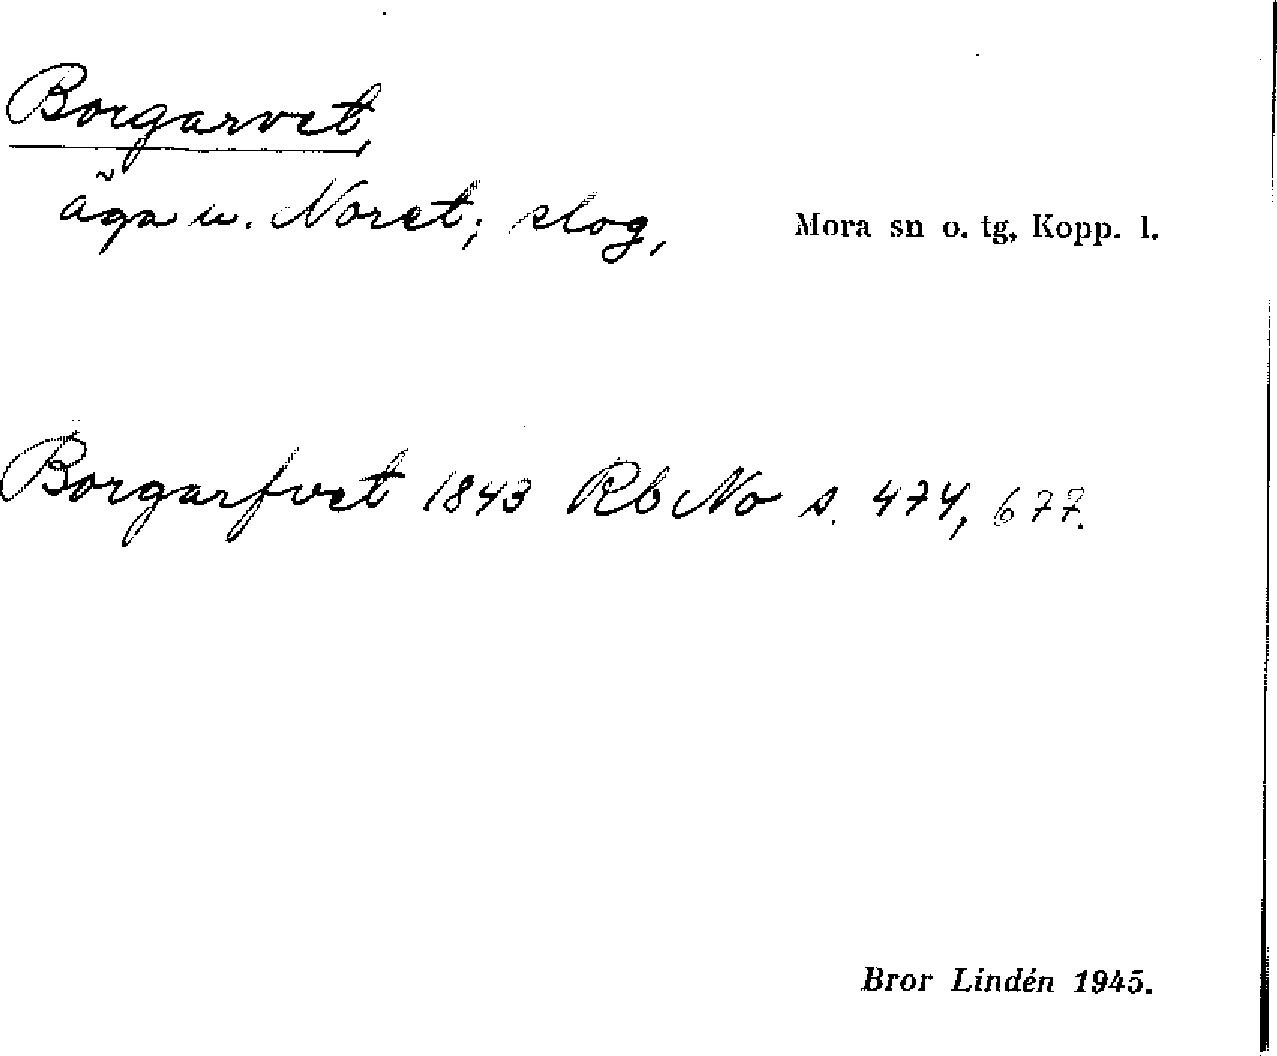 Borgarvet,
äga u. Noret; slog,
Mora sn o. tg, Kopp. l.
Borgarfvet 1843 Rb No s. 474, 677.
Bror Lindén 1945.